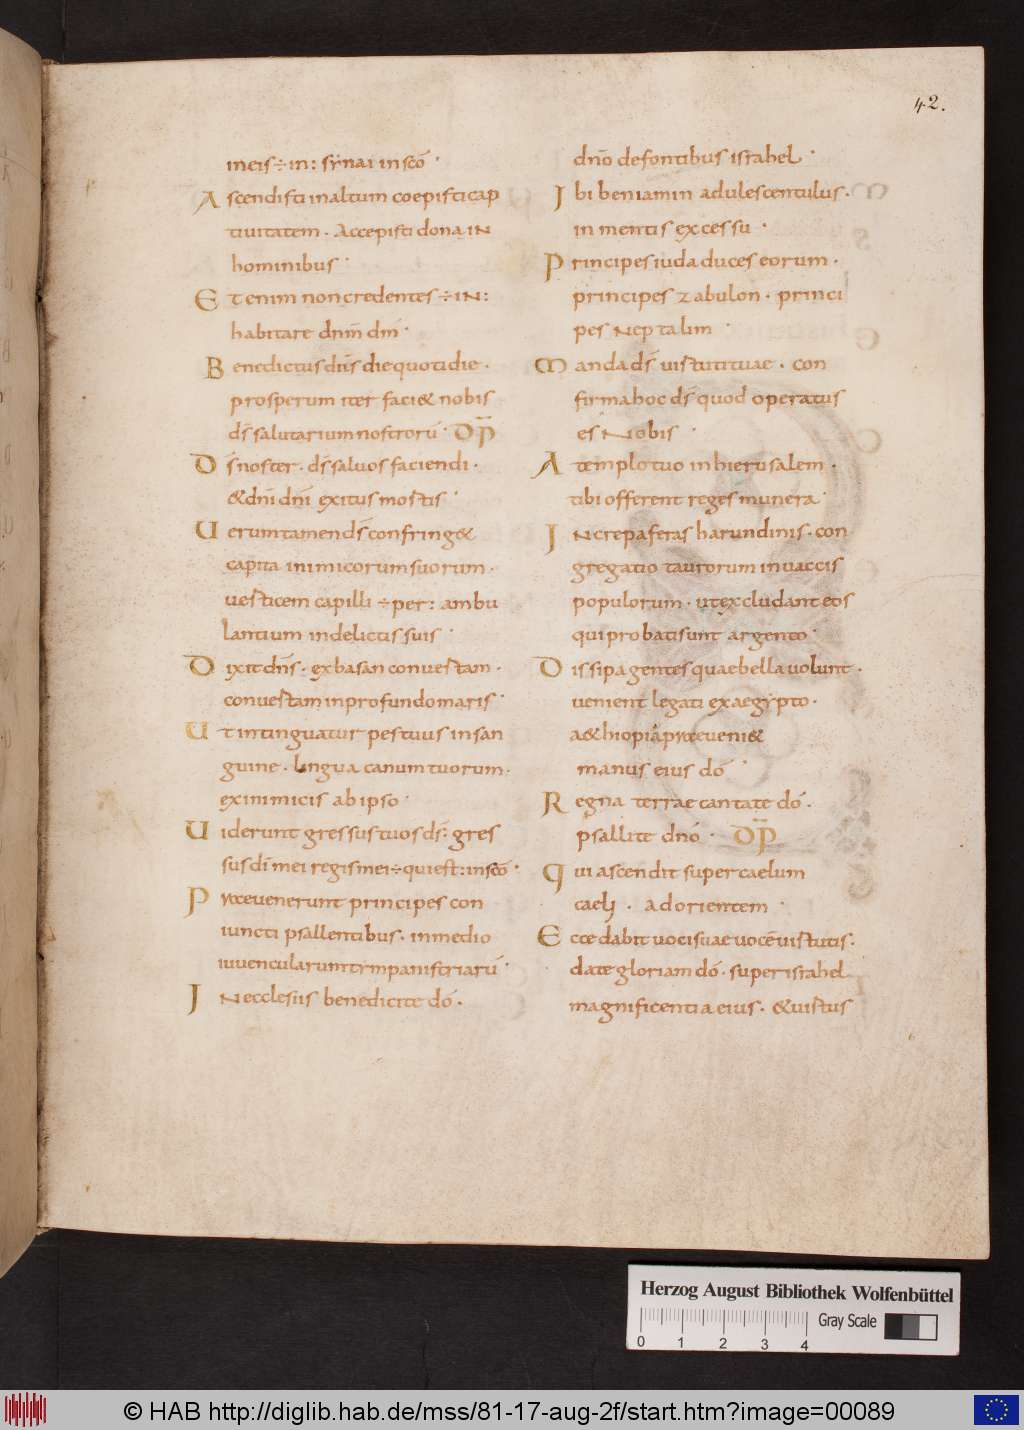 42.
in eis ÷ in: synai in scō·
Ascendisti in altum coepisti cap
tiuitatem · Accepisti dona iN
hominibus·
Etenim non credentes ÷ iN:
habitare dnm̄ dm̄·
Benedictus dns̄ die quotidie·
prosperum iter faci& nobis
ds̄ salutarium nostrorū· DP̄
Ds̄ noster · ds̄ saluos faciendi·
& dnī dnī exitus mortis·
Uerumtamen ds̄ confring&
capita inimicorum suorum·
uerticem capilli ÷ per: ambu
lantium in delictis suis·
Dixit dns̄ · ex basan conuertam·
conuertam in profundo maris·
Ut intinguatur pes tuus in san
guine · lingua canum tuorum·
ex inimicis ab ipso·
Uiderunt gressus tuos ds̄: gres
sus dī mei regis mei ÷ qui est: in scō·
Praeuenerunt principes con
iuncti psallentibus · in medio
iuuencularum tympanistriarū·
IN ecclesiis benedicite dō·
dnō de fontibus israhel·
Ibi beniamin adulescentulus·
in mentis excessu·
Principes iuda duces eorum·
principes zabulon · princi
pes Neptalim·
Manda ds̄ uirtuti tuae · con
firma hoc ds̄ quod operatus
es Nobis·
A templo tuo in hierusalem·
tibi offerent reges munera·
INcrepa feras harundinis · con
gregatio taurorum in uaccis
populorum · ut excludant eos
qui probati sunt argento·
Dissipa gentes quae bella uolunt·
uenient legati ex aegypto·
a&hiopia praeueni&
manus eius dō·
Regna terrae cantate dō·
psallite dnō· DP̄
Qui ascendit super caelum
caeli · ad orientem·
Ecce dabit uoci suae uocē uirtutis·
date gloriam dō · super israhel
magnificentia eius · & uirtus
Herzog August Bibliothek Wolfenbüttel
0 1 2 3 4 Gray Scale
© HAB http://diglib.hab.de/mss/81-17-aug-2f/start.htm?image=00089